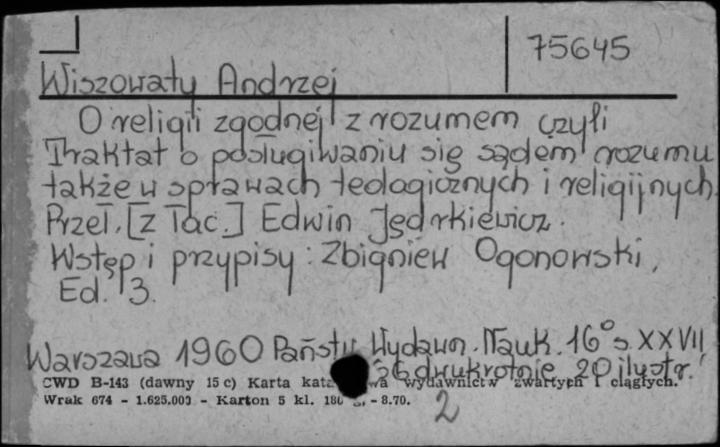 75645
Wiszowaty Andrzej
O religii zgodnej z rozumem czyli
Traktat o posługiwaniu się sądem rozumu
także w sprawach teologicznych i religijnych
Przeł. [z łac.] Edwin Jędrkiewicz.
Wstęp i przypisy: Zbigniew Ogonowski,
Ed. 3.
Warszawa 1960 Państw. Wydawn. Nauk. 16° s. XXVII
26 dwukrotnie 20 ilustr.
CWD B-143 (dawny 15 c) Karta wydawnictw zwartych i ciągłych.
Wrak 674 - 1.625.000 - Karton 5 kl. - 8.70.
2